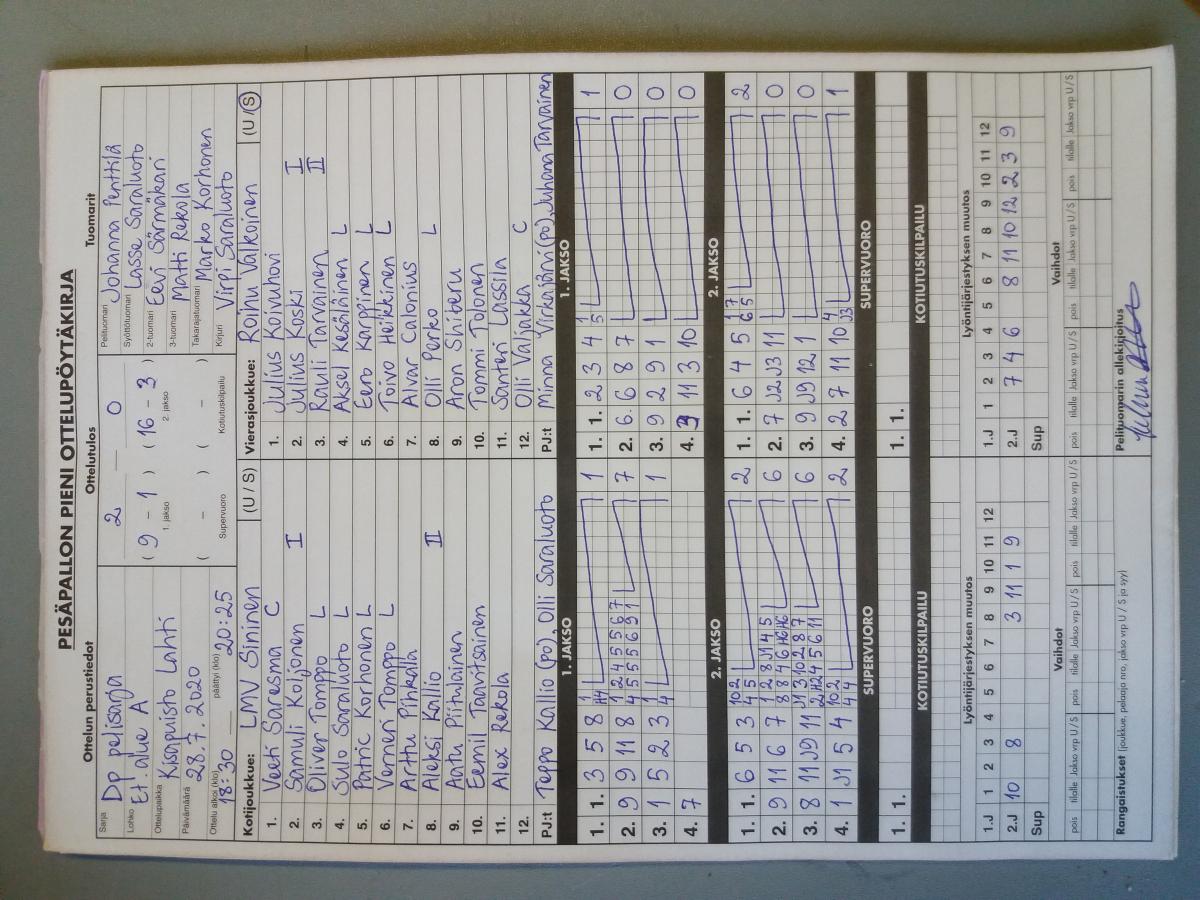 PESÄPALLON PIENI OTTELUPÖYTÄKIRJA
Ottelun perustiedot
Sarja DP pelisarja
Lohko Et. alue A
Ottelupaikka Kisapuisto Lahti
Päivämäärä 28.7.2020
Ottelu alkoi (klo) 18:30 päättyi (klo) 20:25
Ottelutulos
2 0
( 9 - 1 ) ( 16 - 3 )
1. jakso 2. jakso
( - ) ( - )
Supervuoro Kotiutuskilpailu
Tuomarit
Pelituomari Johanna Penttilä
Syöttötuomari Lasse Saraluoto
2-tuomari Eevi Särmäkari
3-tuomari Matti Rekola
Takarajatuomari Marko Korhonen
Kirjuri Virpi Saraluoto
Kotijoukkue: LMV Sininen (U / S)
1. Veeti Saresma C
2. Samuli Koljonen I
3. Oliver Tomppo L
4. Sulo Saraluoto L
5. Patric Korhonen L
6. Verneri Tomppo L
7. Arttu Pihkala
8. Aleksi Kallio II
9. Aatu Piitulainen
10. Eemil Taavitsainen
11. Alex Rekola
12.
PJ:t Teppo Kallio (po), Olli Saraluoto
Vierasjoukkue: Roihu Valkoinen (U / S)
1. Julius Koivuhovi
2. Julius Koski I
3. Rauli Tarvainen II
4. Aksel Kesäläinen L
5. Eero Karppinen L
6. Toivo Heikkinen L
7. Alvar Calonius
8. Olli Perko L
9. Aron Shiberu
10. Tommi Tolonen
11. Santeri Lassila
12. Olli Valjakka C
PJ:t Minna Virkajärvi (po), Juhana Tarvainen
1. JAKSO
1. 1. 3 5 8 1
2. 9 11 8 7
3. 1 5 2 3 4 1
4. 7
1. JAKSO
1. 1. 2 3 4 5 1
2. 6 6 8 7 0
3. 9 2 9 1 0
4. 3 11 3 10 0
2. JAKSO
1. 1. 6 5 3 2
2. 9 11 6 7 6
3. 8 11 J9 11 6
4. 1 J1 5 4 2
2. JAKSO
1. 1. 6 4 5 2
2. 7 J2 J3 11 0
3. 9 J9 12 1 0
4. 2 7 11 10 1
SUPERVUORO
1. 1.
SUPERVUORO
1. 1.
KOTIUTUSKILPAILU
KOTIUTUSKILPAILU
Lyöntijärjestyksen muutos
1.J 1 2 3 4 5 6 7 8 9 10 11 12
2.J 10 8 3 11 1 9
Sup
Lyöntijärjestyksen muutos
1.J 1 2 3 4 5 6 7 8 9 10 11 12
2.J 7 4 6 8 11 10 12 2 3 9
Sup
Vaihdot
pois tilalle Jakso vrp U / S pois tilalle Jakso vrp U / S pois tilalle Jakso vrp U / S
Vaihdot
pois tilalle Jakso vrp U / S pois tilalle Jakso vrp U / S pois tilalle Jakso vrp U / S
Rangaistukset (joukkue, pelaaja nro, jakso, vrp U / S ja syy)
Pelituomarin allekirjoitus